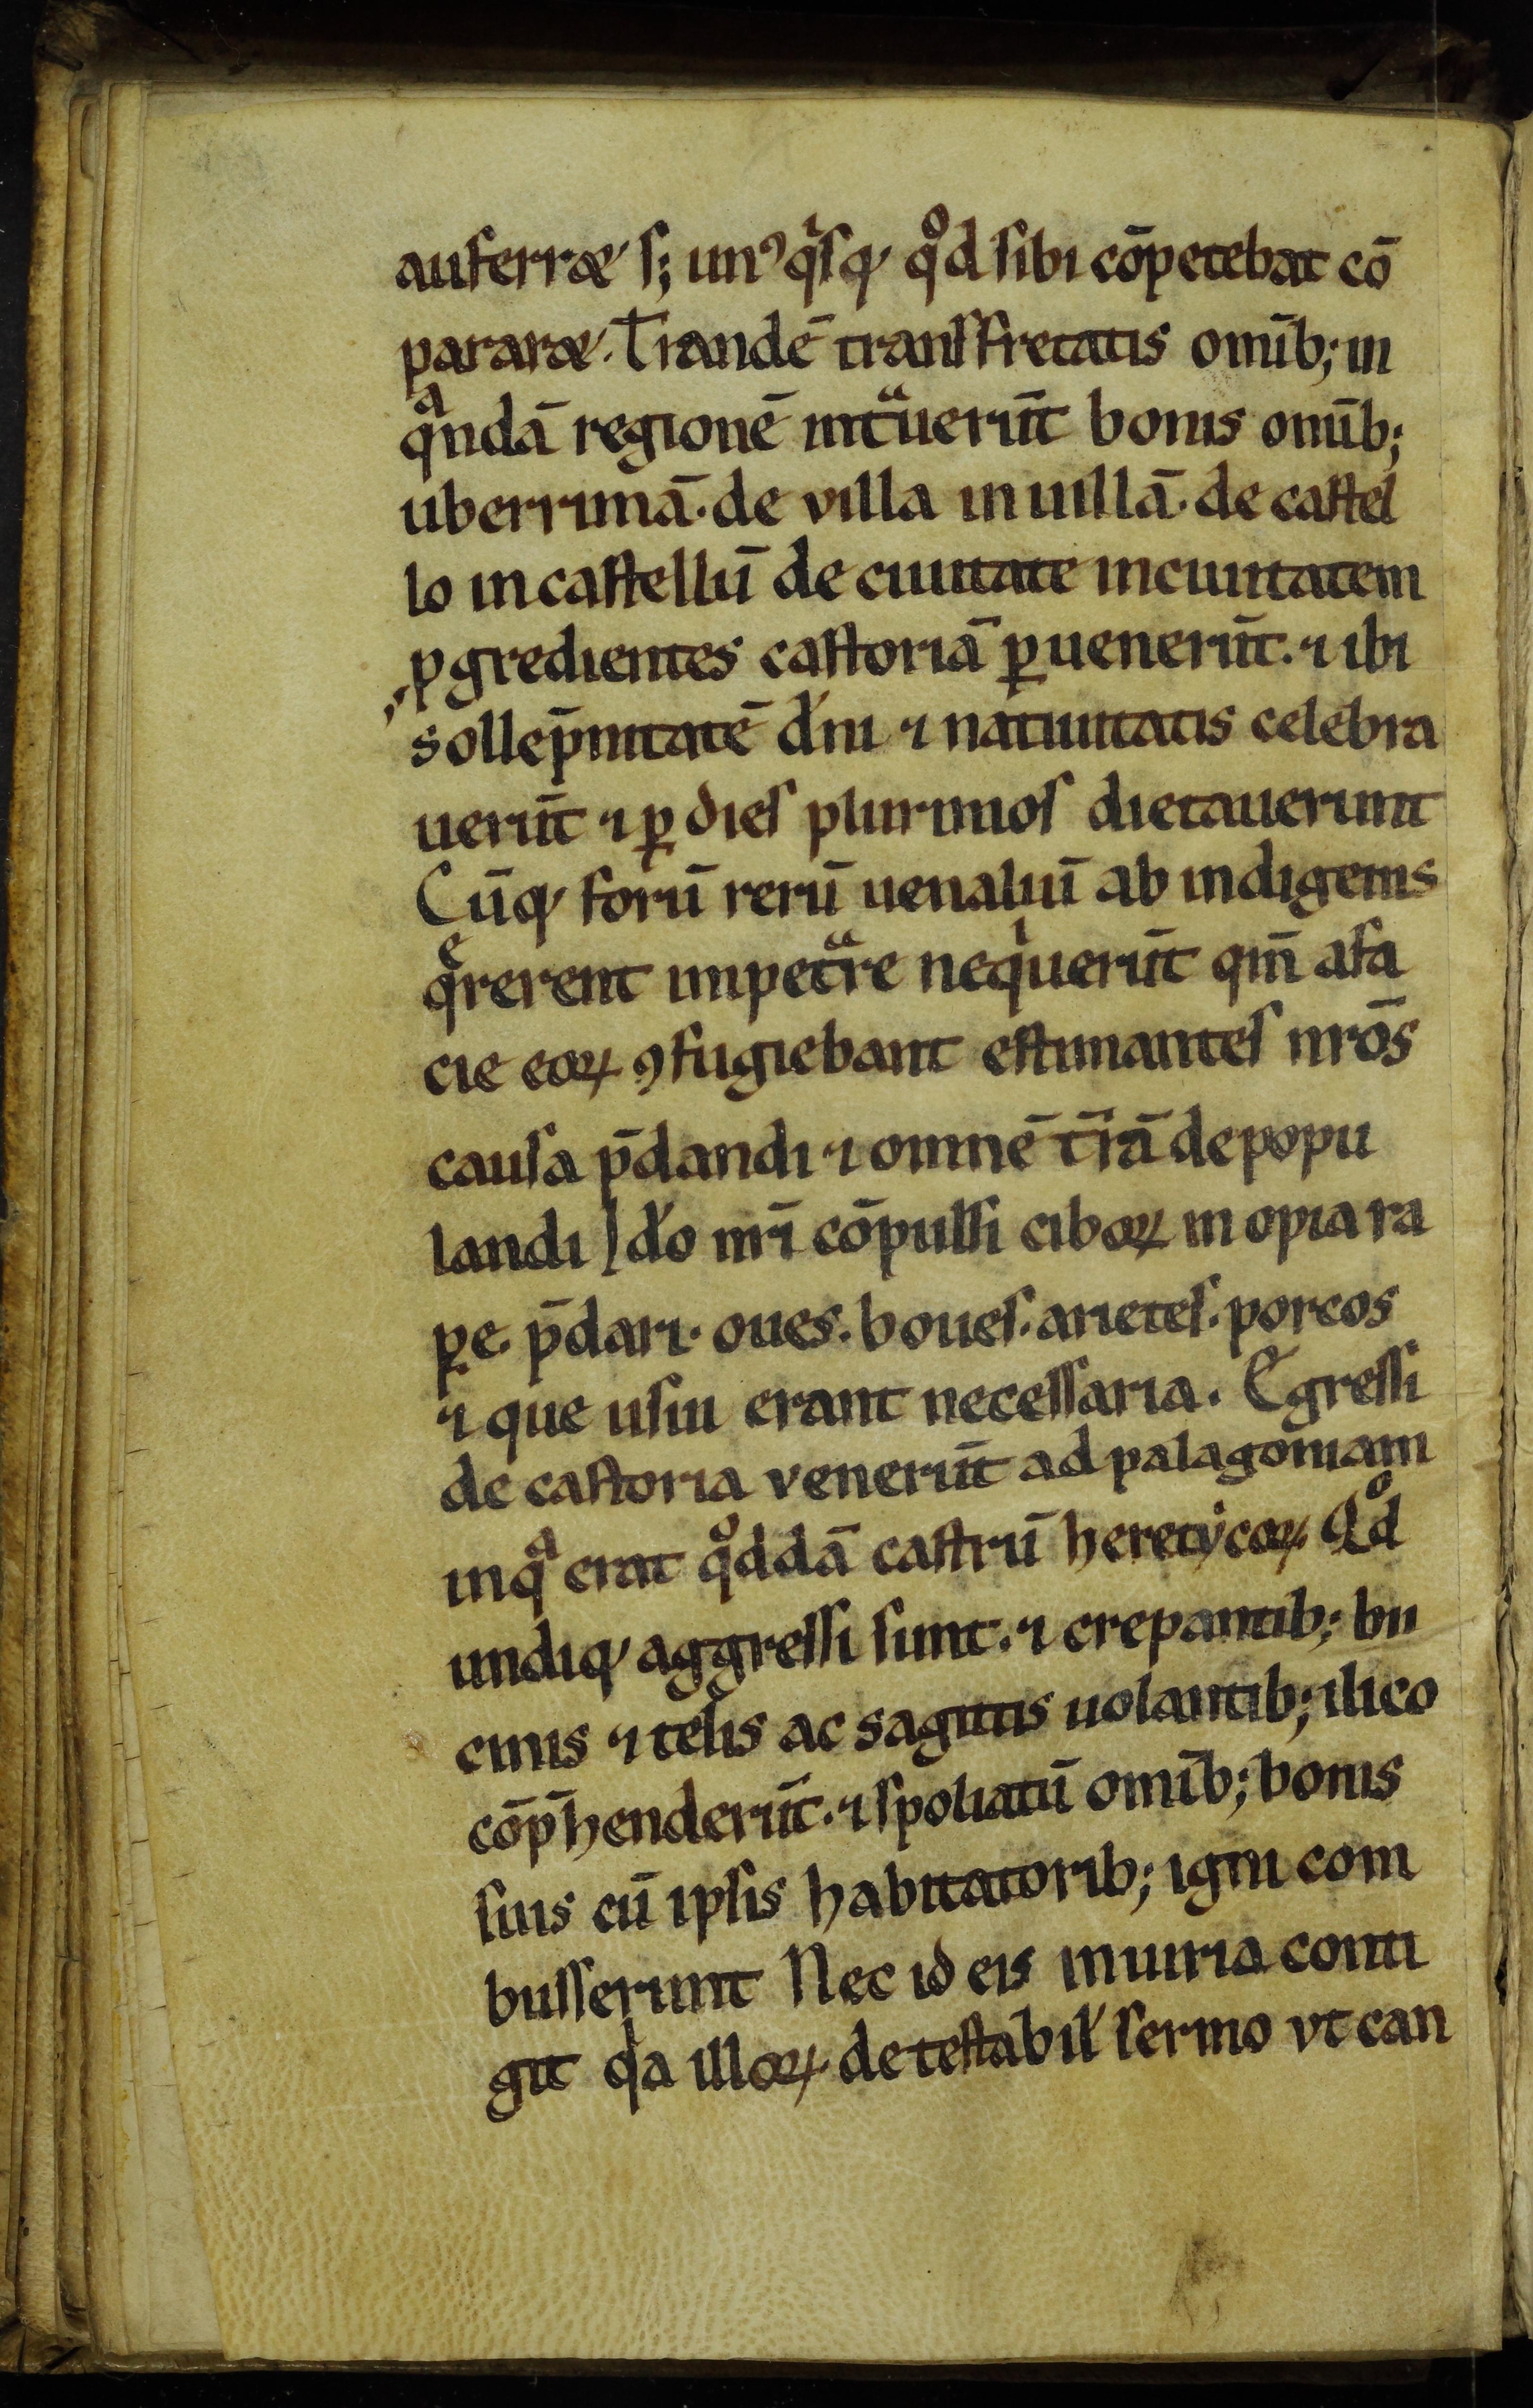 auferræ s; unꝰ qͥsq, qͦd sibi cōpetebat cō
pararæ. Tiandē transfretatis om̄ib; in
qͣndā regionē intͣuerūt bonis om̄ib;
uberrimā. de villa in uillā. de castel
lo in castellū de ciuitate in ciuitatem
ꝓgredientes castoriā ꝑuenerūt. ⁊ ibi
sollēpnitatē dn̄i ⁊ natiuitatis celebra
uerūt ⁊ ꝑ dies plurimos dietauerunt
Cūq, forū rerū uenaliū ab indigenis
qͤrerent impetͣre neqͥuerūt qm̄ a fa
cie eoꝝ ꝯfugiebant estimantes nr̄os
causa p̄dandi ⁊ omnē tr̄ā depopu
landi Ido nr̄i cōpulsi ciboꝝ inopia ra
pe. p̄dari. oues. boues. arietes. porcos
⁊ que usui erant necessaria. Egressi
de castoria venerūt ad palagoniam
in qͣ erat qͦddā castrū heretẏcoꝝ. Qͦd
undiq, aggressi sunt. ⁊ crepantib; bu
cinis ⁊ telis ac sagittis uolantib; ilico
cōp̄henderūt. ⁊ spoliatū om̄ib; bonis
suis cū ipsis habitatorib; igni com
busserunt Nec id eis iniuria conti
git qͥa illoꝝ. detestabil' sermo vt can